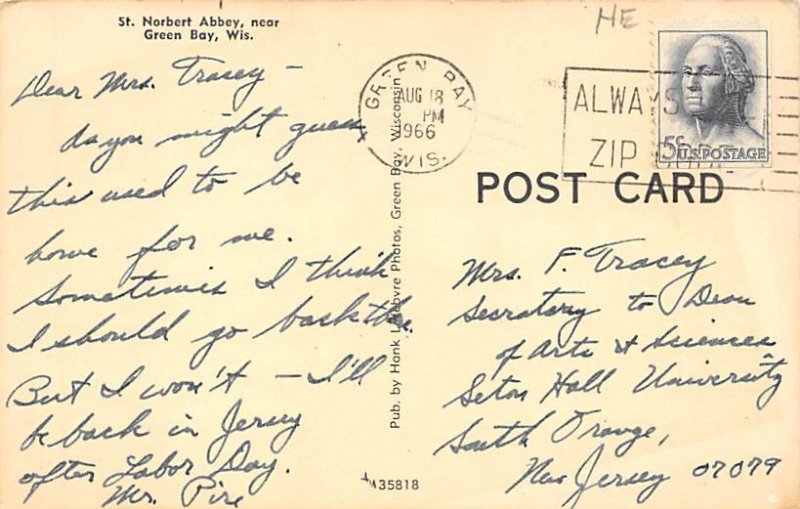 St. Norbert Abbey, near
Green Bay, Wis.
Dear Mrs. Tracey —
As you might guess,
this used to be
home for me.
Sometimes I think
I should go back there.
But I won't — I'll
be back in Jersey
after Labor Day.
Mr. Pire
Pub. by Hank Lefebvre Photos, Green Bay, Wisconsin
A35818
HE
GREEN BAY
AUG 18
PM
1966
WIS.
ALWAYS
ZIP CODE
5¢ U.S. POSTAGE
POST CARD
Mrs. F. Tracey
Secretary to Dean
of Arts & Sciences
Seton Hall University
South Orange,
New Jersey 07079